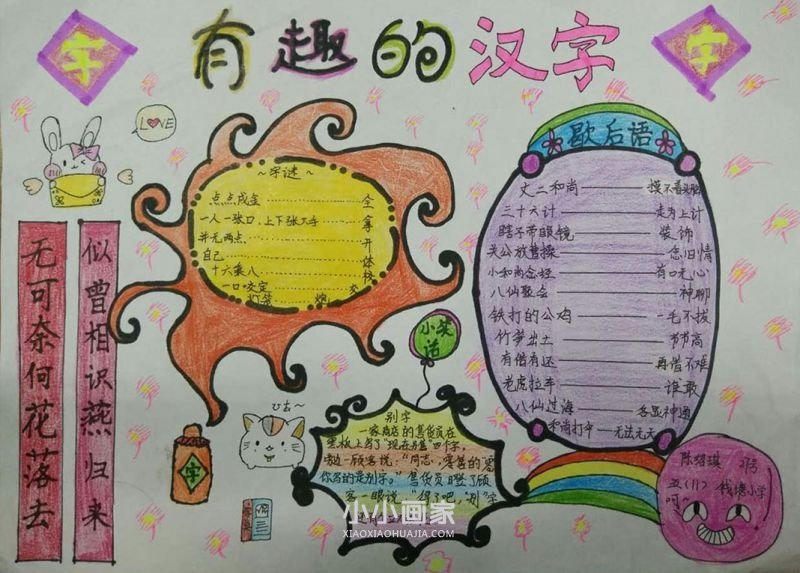 字
有趣的汉字
字
LOVE
无可奈何花落去
似曾相识燕归来
~字谜~
点点成金——全
一人一张口,上下张大手——拿
并无两点——开
自己——体
十六乘八——核
一口咬定——交
灯笼——炮
歇后语
丈二和尚——摸不着头脑
三十六计——走为上计
瞎子带眼镜——装饰
关公放曹操——念旧情
小和尚念经——有口无心
八仙聚会——神聊
铁打的公鸡——一毛不拔
竹笋出土——节节高
有借有还——再借不难
老虎拉车——谁敢
八仙过海——各显神通
和尚打伞——无法无天
小笑话
别字
一家商店的售货员在
黑板上写了“现在另售”四个字,
一顾客说:“同志,零售的零
你写的是别字。”售货员瞪了顾
客一眼说:“得了吧,‘别’字
字
小小画家
XIAOXIAOHUAJIA.COM
陈绍琪
五(11)
钱塘小学
呵~